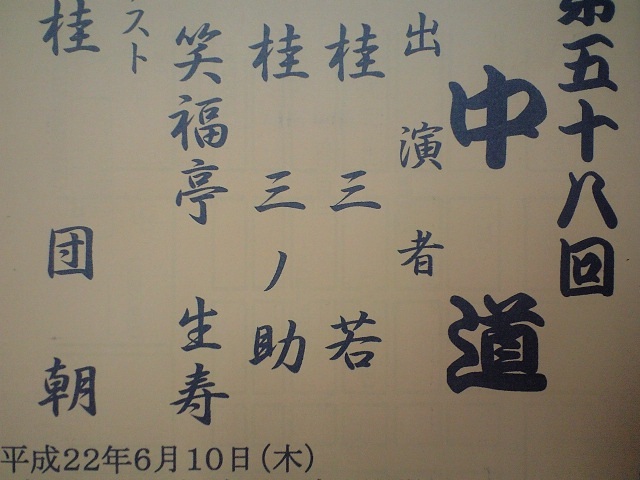 第五十八回
中道
出演者
桂三若
桂三ノ助
笑福亭生寿
スト
桂団朝
平成22年6月10日(木)